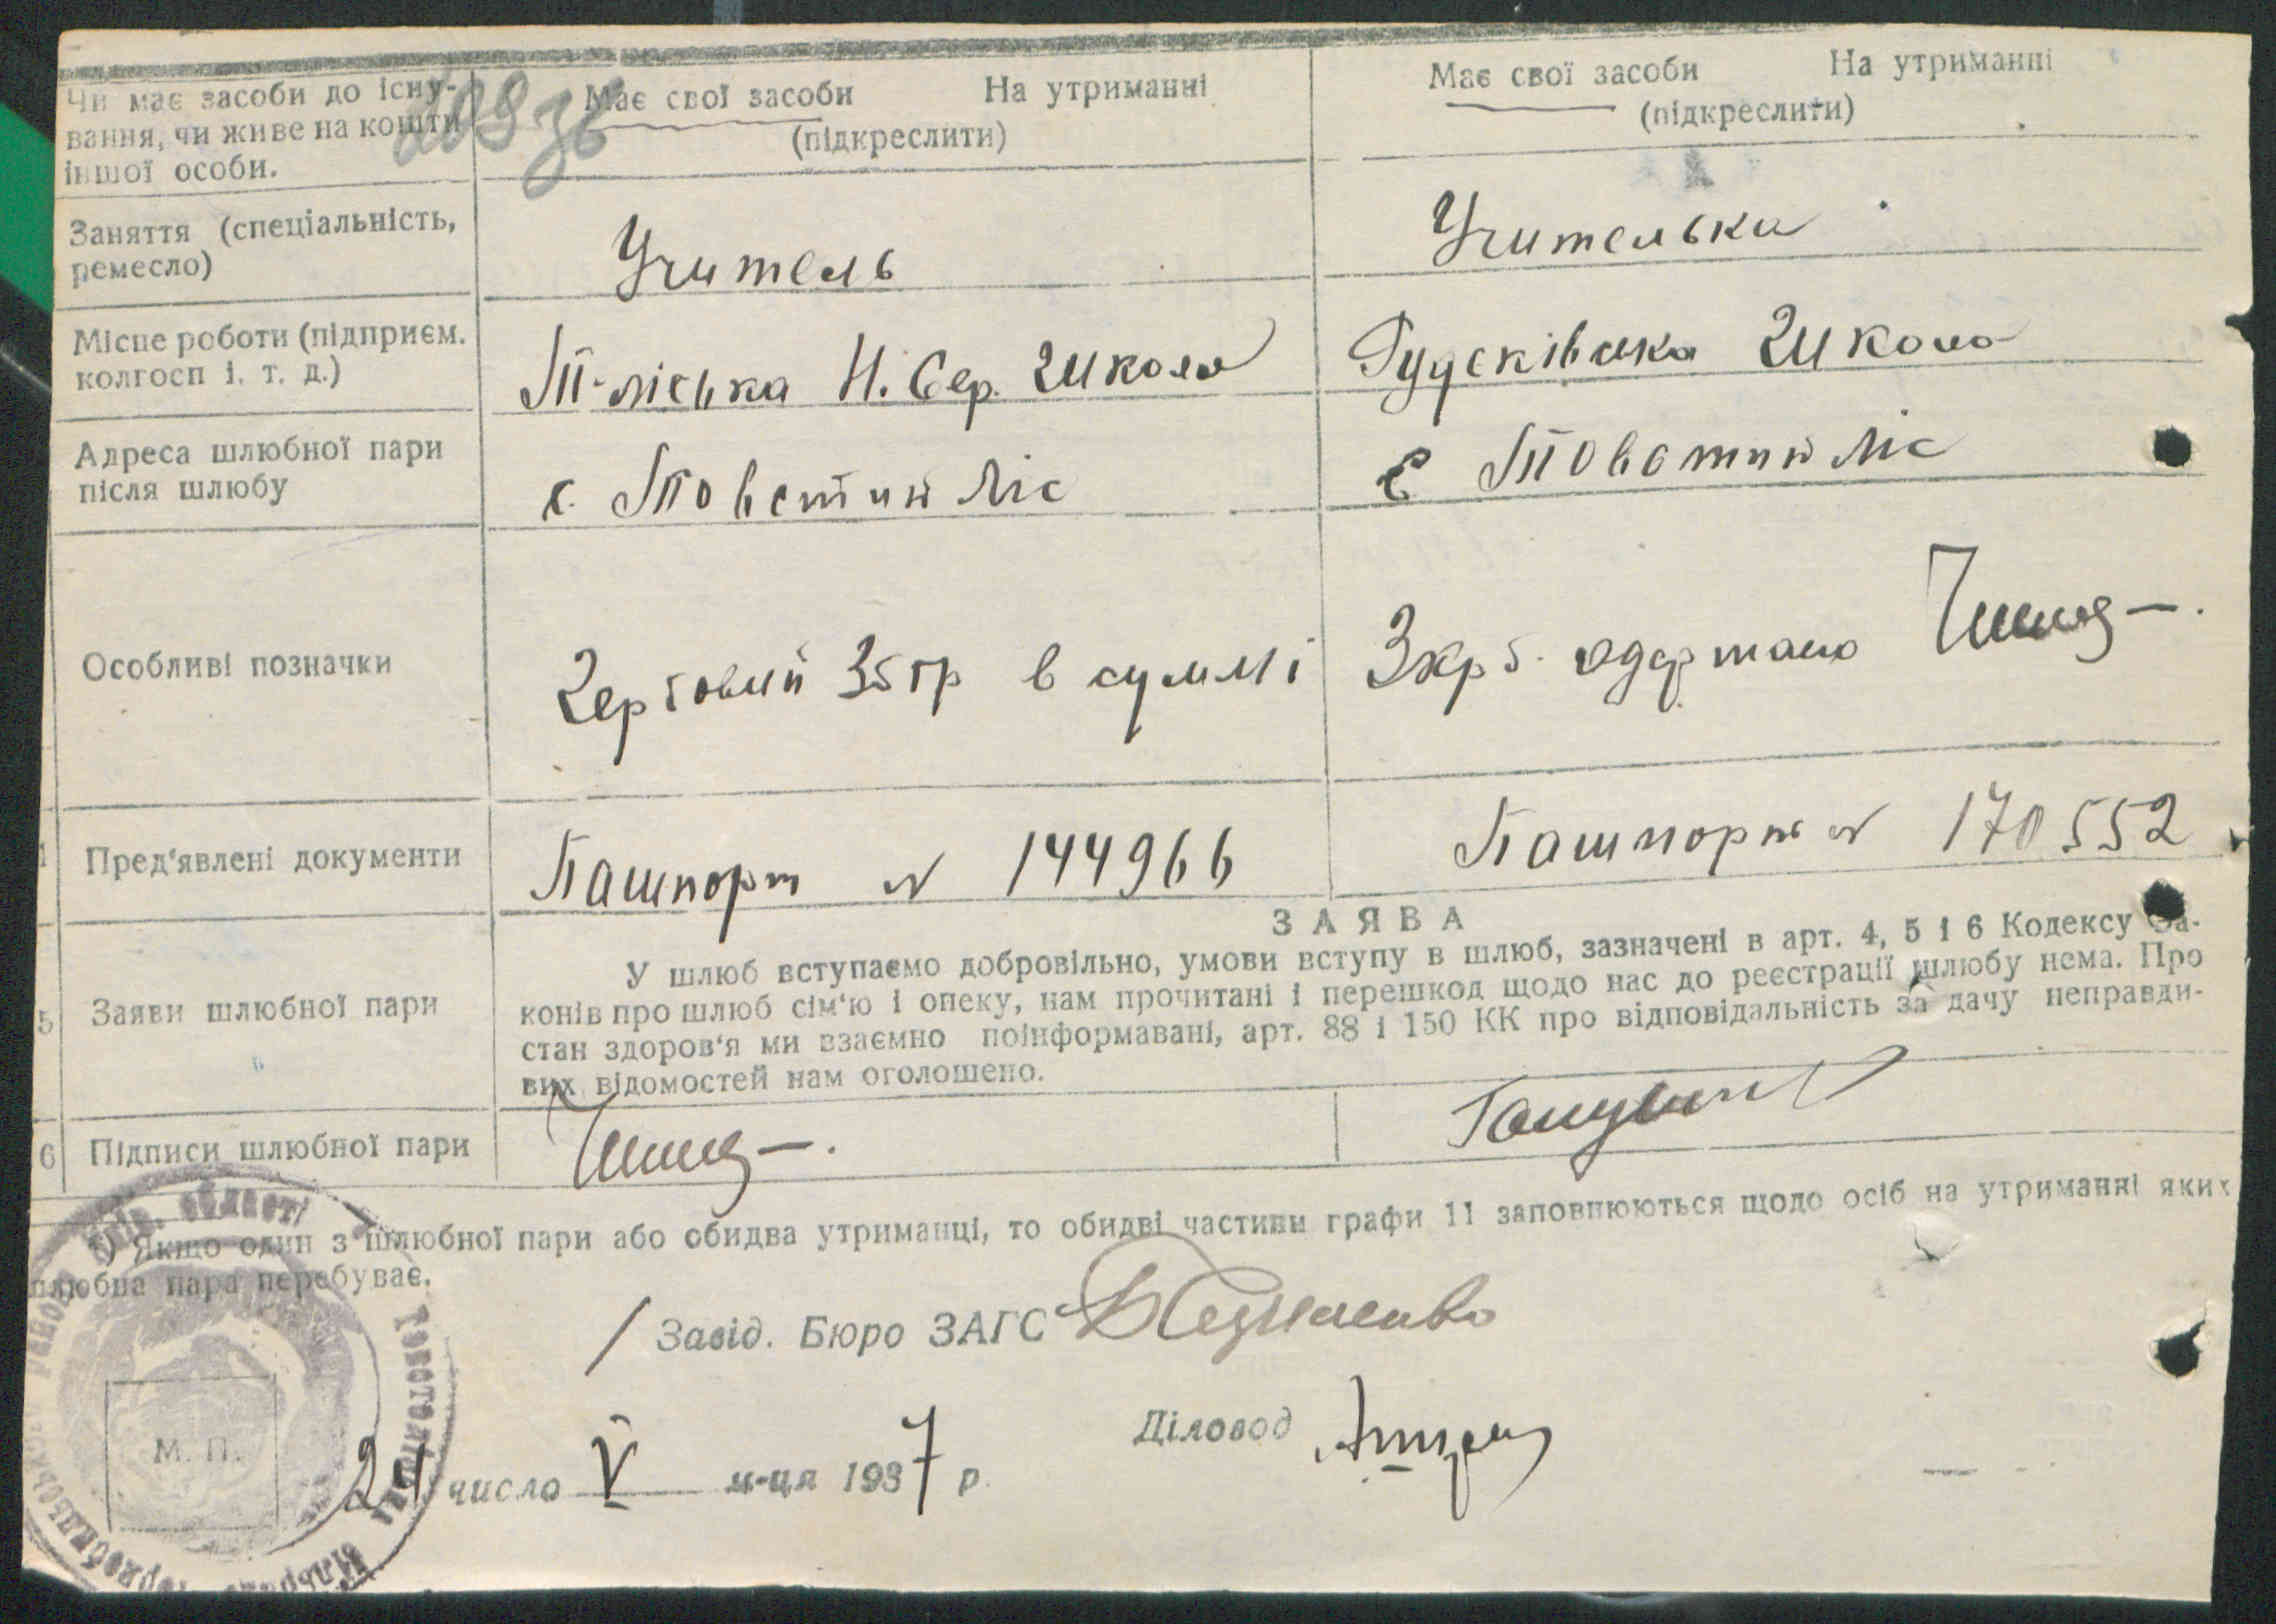 Чи має засоби до існу-
вання, чи живе на кошти
іншої особи.
Має свої засоби На утриманні
(підкреслити)
Має свої засоби На утриманні
(підкреслити)
Заняття (спеціальність,
ремесло)
Учитель
Учителька
Місце роботи (підприєм.
колгосп і. т. д.)
Т-ліська Н. Сер. Школа
Школа
Адреса шлюбної пари
після шлюбу
с. Товстий Ліс
с Товстий Ліс
Особливі позначки
Гербовий збір в суммі 3 крб. одержано
Пред'явлені документи
Пашпорт № 144966
Пашпорт № 170552
5 Заяви шлюбної пари
ЗАЯВА
У шлюб вступаємо добровільно, умови вступу в шлюб, зазначені в арт. 4, 5 і 6 Кодексу За-
конів про шлюб сім'ю і опеку, нам прочитані і перешкод щодо нас до реєстрації шлюбу нема. Про
стан здоров'я ми взаємно поінформавані, арт. 88 і 150 КК про відповідальність за дачу неправди-
вих відомостей нам оголошено.
6 Підписи шлюбної пари
Якщо один з шлюбної пари або обидва утриманці, то обидві частини графи 11 заповнюються щодо осіб на утриманні яких
шлюбна пара перебуває.
Завід. Бюро ЗАГС
Діловод
М. П.
21 число V м-ця 1937 р.